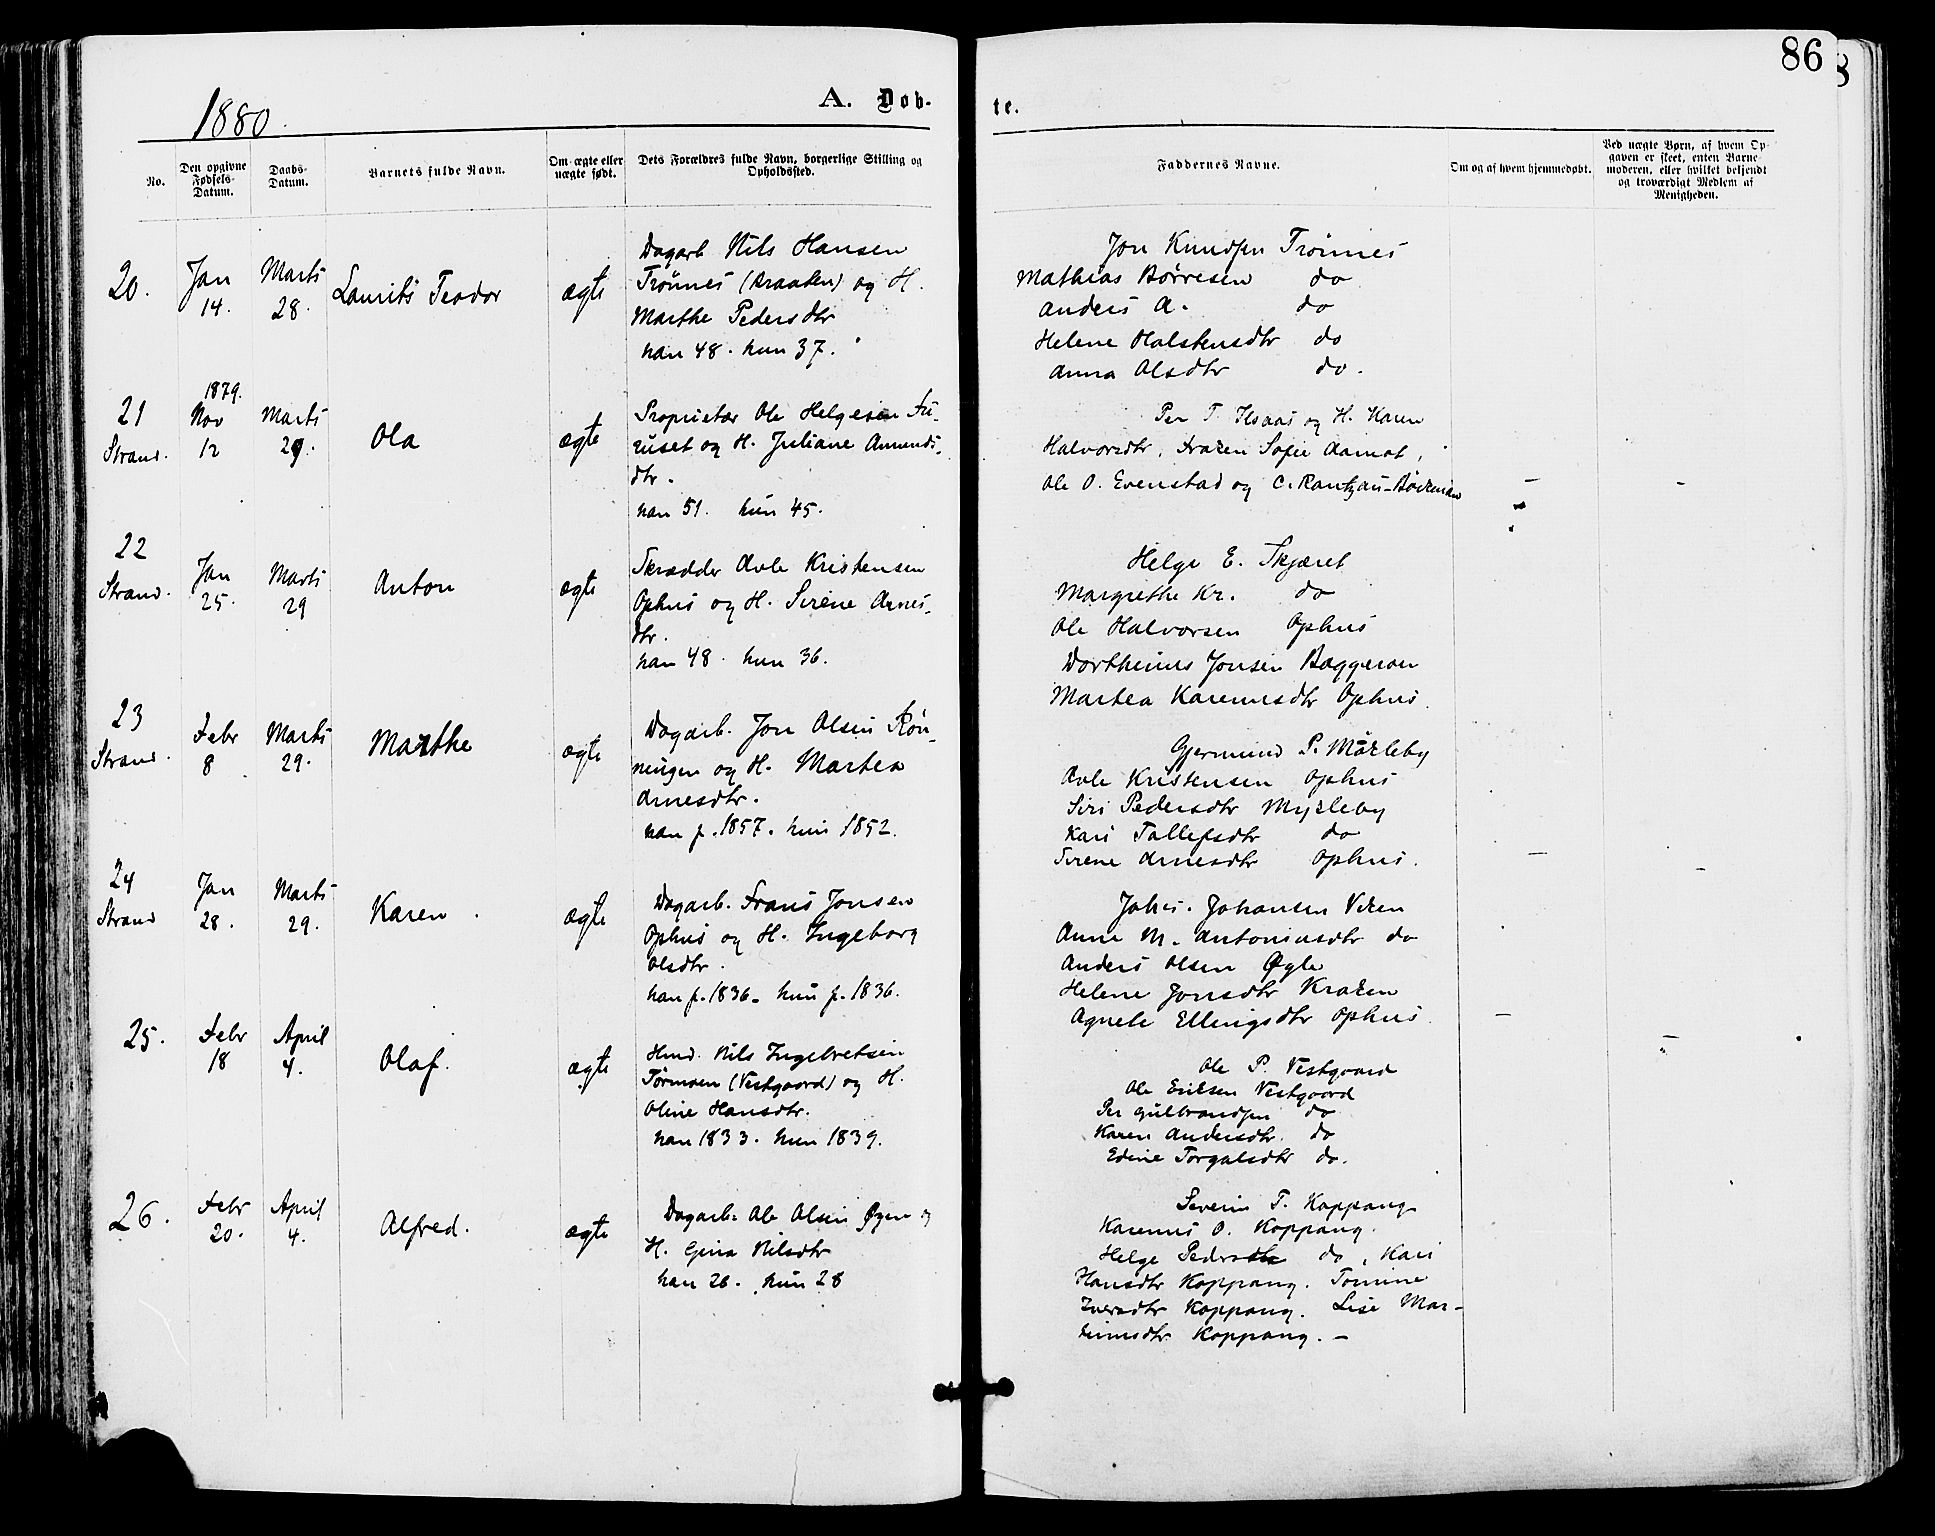 86
1880.
A. Døb-
te.
No.
Den opgivne Fødsels-Datum.
Daabs-Datum.
Barnets fulde Navn.
Om ægte eller uægte født.
Dets Forældres fulde Navn, borgerlige Stilling og Opholdssted.
Faddernes Navne.
Om og af hvem hjemmedøbt.
Ved uægte Børn, af hvem Op-
gaven er skeet, enten Barne-
moderen, eller hvilket bekjendt
og troværdigt Medlem af
Menigheden.
20.
Jan
14.
Marts
28.
Laurits Teodor
ægte
Dagarb Nils Hansen
Trønnes (Braaten) og H.
Marthe Pedersdtr
han 48. hun 37.
Jon Knudsen Trønnes
Mathias Børresen do
Anders A. do
Helene Halstensdtr do
Anna Olsdtr do.
21
Strand.
1879.
Nov
12
Marts
29.
Ola
ægte
Proprietær Ole Helgesen Fu-
ruset og H. Juliane Amunds-
dtr.
han 51. hun 45.
Per T. og H. Karen
Halvorsdtr, Frøken Sofie Aamot,
Ole O. Evenstad og C. Rantzau-
22
Strand.
Jan
25.
Marts
29
Anton
ægte
Skrædder Avle Kristensen
Ophus og H. Sirene Arnes-
dtr.
han 48. hun 36.
Helge E. Skjæret
Margrethe Kr. do
Ole Halvorsen Ophus
Dortheus Jonsen Baggeroen
Martea Karenusdtr Ophus
23
Strand.
Febr
8
Marts
29.
Marthe
ægte
Dagarb. Jon Olsen Røn-
ningen og H. Martea
Arnesdtr.
han f. 1857. hun 1852.
Gjermund P. Mørkeby
Avle Kristensen Ophus
Siri Pedersdtr Myrleby
Kari Tollefsdtr do
Sirene Arnesdtr Ophus.
24
Strand
Jan
28.
Marts
29.
Karen
ægte
Dagarb. Frans Jonsen
Ophus og H. Ingeborg
Olsdtr.
han f. 1836. hun f. 1836.
Johs. Johansen Viken
Anne M. Antoniusdtr do
Anders Olsen Øgle
Helene Jonsdtr Kroken
Agnete Ellingsdtr Ophus
25.
Febr
18
April
4.
Olaf.
ægte
Hmd. Nils Ingebretsen
Tørmoen (Vestgaard) og H.
Oline Hansdtr.
han 1833. hun 1839.
Ole P. Vestgaard
Ole Eriksen Vestgaard
Per Gulbrandsen do
Karen Andersdtr. do
Edine Torgalsdtr do.
26.
Febr
20.
April
4.
Alfred.
ægte
Dagarb. Ole Olsen Øgen og
H. Gina Nilsdtr
han 26. hun 28
Severin T. Koppang
Karenus O. Koppang.
Helge Peders do, Kari
Hansdtr Koppang. Tomine
Iversdtr Koppang. Lise Mar-
tinusdtr Koppang. –